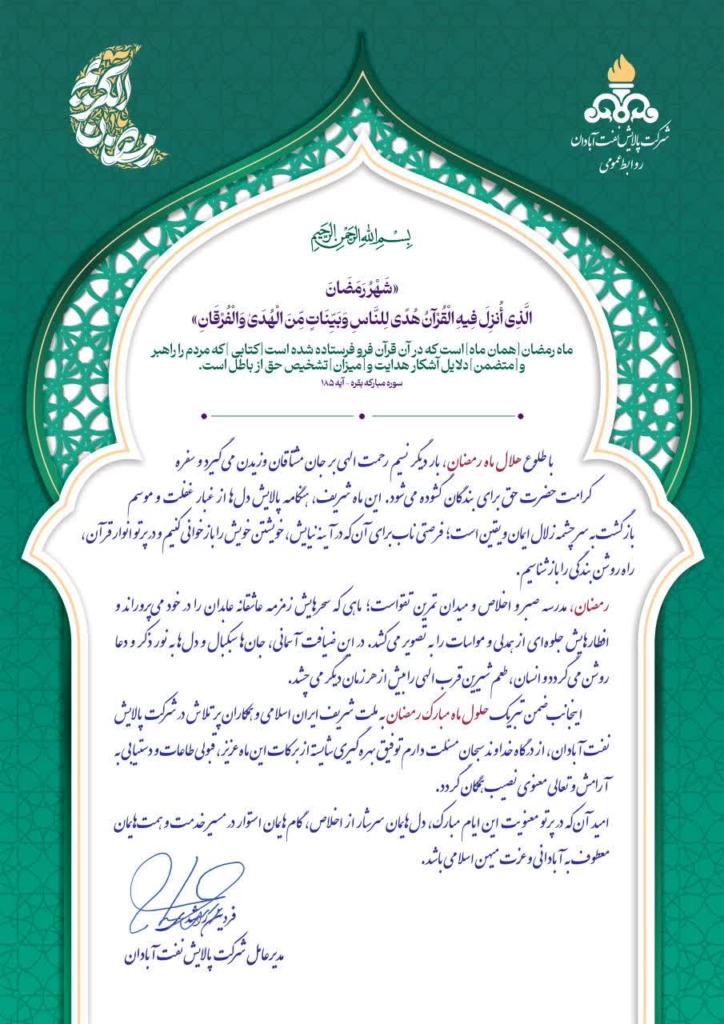 رمضان الکریم
شرکت پالایش نفت آبادان
روابط عمومی
بسم الله الرحمن الرحیم
«شَهْرُ رَمَضَانَ
الَّذِی أُنزِلَ فِیهِ الْقُرْآنُ هُدًی لِلنَّاسِ وَبَیِّنَاتٍ مِّنَ الْهُدَیٰ وَالْفُرْقَانِ»
ماه رمضان [همان ماه] است که در آن قرآن فرو فرستاده شده است [کتابی] که مردم را راهبر
و [متضمن] دلایل آشکار هدایت و [میزان] تشخیص حق از باطل است.
سوره مبارکه بقره - آیه ۱۸۵
با طلوع هلال ماه رمضان، بار دیگر نسیم رحمت الهی بر جان مشتاقان وزیدن می‌گیرد و سفره
کرامت حضرت حق برای بندگان گشوده می‌شود. این ماه شریف، هنگامه پالایش دل‌ها از غبار غفلت و موسم
بازگشت به سرچشمه زلال ایمان و یقین است؛ فرصتی ناب برای آن‌که در آینه نیایش، خویشتن خویش را بازخوانی کنیم و در پرتو انوار قرآن،
راه روشن بندگی را بازشناسیم.
رمضان، مدرسه صبر و اخلاص و میدان تمرین تقواست؛ ماهی که سحرهایش زمزمه عاشقانه عابدان را در خود می‌پروراند و
افطارهایش جلوه‌ای از همدلی و مواسات را به تصویر می‌کشد. در این ضیافت آسمانی، جان‌ها سبکبال و دل‌ها به نور ذکر و دعا
روشن می‌گردد و انسان، طعم شیرین قرب الهی را بیش از هر زمان دیگر می‌چشد.
اینجانب ضمن تبریک حلول ماه مبارک رمضان به ملت شریف ایران اسلامی و همکاران پرتلاش در شرکت پالایش
نفت آبادان، از درگاه خداوند سبحان مسئلت دارم توفیق بهره‌گیری شایسته از برکات این ماه عزیز، قبولی طاعات و دستیابی به
آرامش و تعالی معنوی نصیب همگان گردد.
امید آن‌که در پرتو معنویت این ایام مبارک، دل‌هایمان سرشار از اخلاص، گام‌هایمان استوار در مسیر خدمت و همت‌هایمان
معطوف به آبادانی و عزت میهن اسلامی باشد.
مدیرعامل شرکت پالایش نفت آبادان